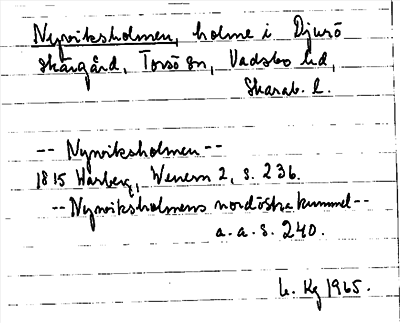 Nyrviksholmen, holme i Djurö
skärgård, Torsö sn, Vadsbo hd,
Skarab. l.
-- Nyrviksholmen --
1815 Warberg, Wenern 2, s. 236.
-- Nyrviksholmens nordöstra kummel --
a.a.s. 240.
Kg 1965.